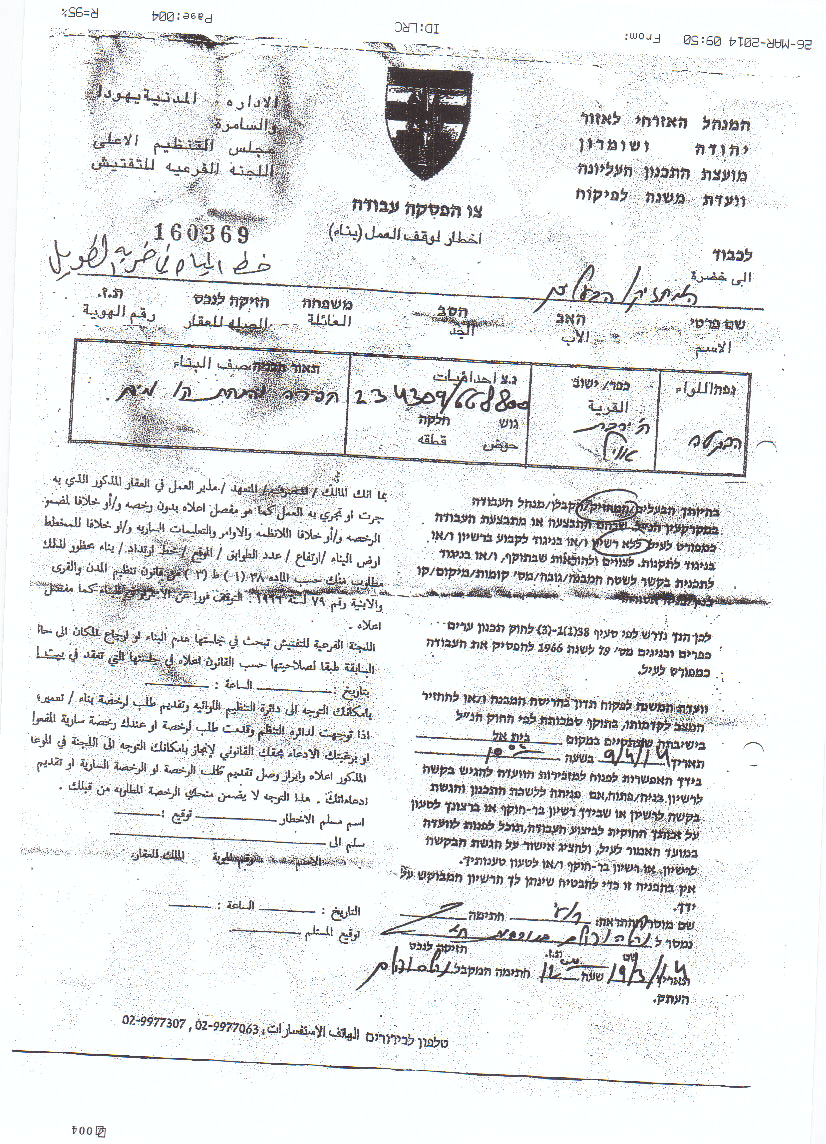 26-MAR-2014 09:50 From: ID:LRC Page:004 R=95%
המנהל האזרחי לאזור
יהודה ושומרון
מועצת התכנון העליונה
וועדת משנה לפיקוח
الاداره المدنية يهودا
والسامرة
مجلس التنظيم الاعلى
اللجنه الفرعيه للتفتيش
צו הפסקת עבודה
اخطار لوقف العمل (بناء)
160369
خط المياه
לכבוד
الى حضرة
המחזיק/הבעלים
שם פרטי האב הסב משפחה הזיקה לנכס ת.ז.
الاسم الاب الجد العائلة الصله للعقار رقم الهوية
נפה اللواء
הבקעה
כפר/ישוב
القرية
נ.צ احداثيات
234309/668800
גוש חלקה
حوض قطعه
תאור المبنى وصف البناء
חפירה והנחת קו מים
בהיותך הבעלים/המחזיק/הקבלן/מנהל העבודה
במקרקעין הנ"ל, שבהם התבצעה או מתבצעת העבודה
כמפורט לעיל ללא רשיון ו/או בניגוד לקבוע ברשיון ו/או
בניגוד לתקנות, לצווים ולהוראות שבתוקף, ו/או בניגוד
לתכנית בקשר לשטח המבנה/גובה/מס' קומות/מיקום/קו
לכן הנך נדרש לפי סעיף 38(1)-(3) לחוק תכנון ערים
כפרים ובניינים מס' 79 לשנת 1966 להפסיק את העבודה
כמפורט לעיל.
וועדת המשנה לפקוח תדון בהריסת המבנה ו/או להחזיר
המצב לקדמותו, בתוקף סמכותה לפי החוק הנ"ל
בישיבתה שתתקיים במקום בית אל
תאריך 9/4/14 בשעה
בידך האפשרות לפנות למזכירות הוועדה להגיש בקשה
לרשיון בניה/פתוח, אם פנית ללשכת התכנון והגשת
בקשה לרשיון או שבידך רשיון בר-תוקף או ברצונך לטעון
על זכותך החוקית לביצוע העבודה, תוכל לפנות לוועדה
במועד האמור לעיל, ולהציג אישור על הגשת הבקשה
לרשיון, או רשיון בר-תוקף ו/או לטעון טענותיך.
אין בהפניה זו כדי להבטיח שינתן לך הרשיון המבוקש על
ידך.
שם מוסר ההתראה: חתימה
נמסר ל
שם ת.ז. הזיקה לנכס
תאריך 19/3/14 שעה 12 חתימת המקבל
העתק.
بما انك المالك / المتصرف / المتعهد / مدير العمل في العقار المذكور الذي به
جرت او تجري به العمل كما هو مفصل اعلاه بدون رخصه و/او خلافا
الرخصه و/او خلافا للانظمه والاوامر والتعليمات الساريه و/او خلافا للمخطط
ارض البناء /ارتفاع / عدد الطوابق / الموقع / خط ارتداد. / بناء محظور لذلك
مطلوب منك حسب الماده ٣٨ (١) ط (٣) من قانون تنظيم المدن والقرى
والابنية رقم ٧٩ لسنة ١٩٦٦ التوقف فورا عن كما مفصل
اعلاه .
اللجنة الفرعية للتفتيش تبحث في جلستها هدم البناء او ارجاع المكان الى
السابقة طبقا لصلاحيتها حسب القانون اعلاه في جلستها التي تنعقد في بيت
بتاريخ : الساعة :
بامكانك التوجه الى دائرة التنظيم اللوائيه وتقديم طلب لرخصة بناء / تعمير،
اذا توجهت لدائرة التنظيم وقدمت طلب لرخصة او عندك رخصة سارية المفعول
او برغبتك الادعاء بحقك القانوني لانجاز بامكانك التوجه الى اللجنة في
المذكور اعلاه وابراز وصل تقديم طلب الرخصة او الرخصة السارية او تقديم
ادعاءاتك . هذا التوجه لا يضمن منحك الرخصة المطلوبه من قبلك .
اسم مسلم الاخطار توقيع :
سلم الى
الاسم رقم الهوية المالك للعقار
التاريخ : الساعة :
توقيع المستلم
טלפון לבירורים الهاتف للاستفسارات: 02-9977063, 02-9977307
004